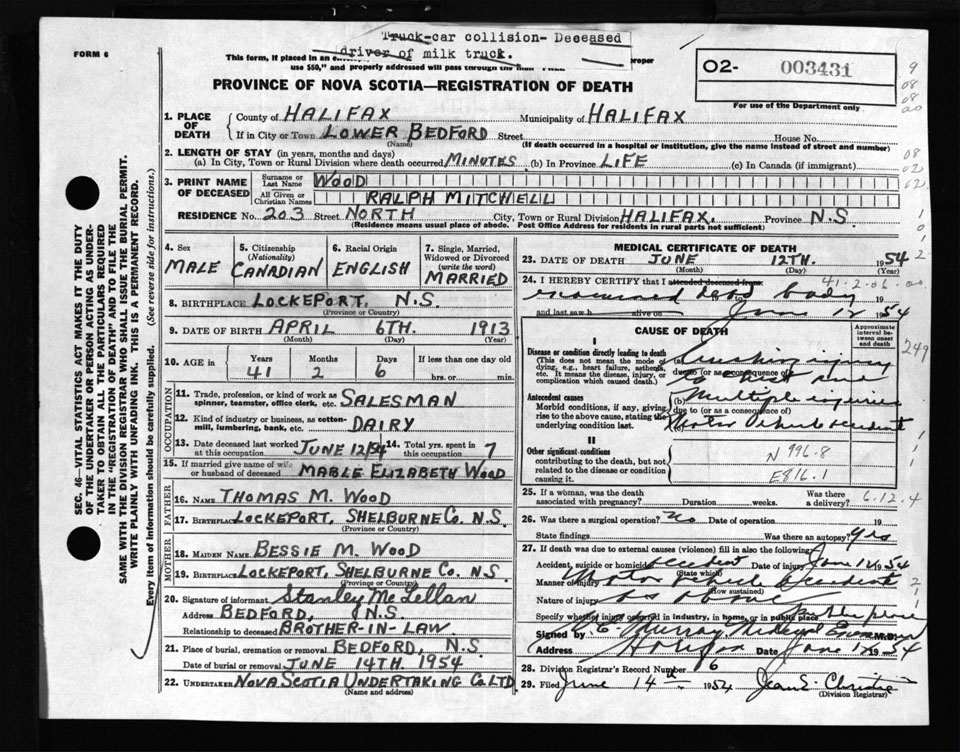 Truck-car collision- Deceased
driver of milk truck.
FORM 6
This form, if placed in an enve
use $50," and properly addressed will pass through the mail FREE
roper
O2- 003431
For use of the Department only
PROVINCE OF NOVA SCOTIA—REGISTRATION OF DEATH
1. PLACE OF DEATH
County of HALIFAX Municipality of HALIFAX
If in City or Town LOWER BEDFORD Street House No.
(Name) (If death occurred in a hospital or institution, give the name instead of street and number)
2. LENGTH OF STAY (in years, months and days)
(a) In City, Town or Rural Division where death occurred MINUTES (b) In Province LIFE (c) In Canada (if immigrant)
3. PRINT NAME OF DECEASED
Surname or Last Name WOOD
All Given or Christian Names RALPH MITCHELL
RESIDENCE No. 203 Street NORTH City, Town or Rural Division HALIFAX. Province N.S
(Residence means usual place of abode. Post Office Address for residents in rural parts not sufficient)
4. Sex MALE
5. Citizenship (Nationality) CANADIAN
6. Racial Origin ENGLISH
7. Single, Married, Widowed or Divorced (write the word) MARRIED
8. BIRTHPLACE LOCKEPORT, N.S.
(Province or Country)
9. DATE OF BIRTH APRIL 6TH. 1913
(Month) (Day) (Year)
10. AGE in Years 41 Months 2 Days 6 If less than one day old hrs. or min.
OCCUPATION
11. Trade, profession, or kind of work as spinner, teamster, office clerk, etc. SALESMAN
12. Kind of industry or business, as cotton-mill, lumbering, bank, etc. DAIRY
13. Date deceased last worked at this occupation JUNE 12/54 14. Total yrs. spent in this occupation 7
15. If married give name of wife or husband of deceased MABLE ELIZABETH WOOD
FATHER
16. NAME THOMAS M. WOOD
17. BIRTHPLACE LOCKEPORT, SHELBURNE CO. N.S.
(Province or Country)
MOTHER
18. MAIDEN NAME BESSIE M. WOOD
19. BIRTHPLACE LOCKEPORT, SHELBURNE CO. N.S.
(Province or Country)
20. Signature of informant Stanley McLellan
Address BEDFORD, N.S.
Relationship to deceased BROTHER-IN-LAW
21. Place of burial, cremation or removal BEDFORD, N.S
Date of burial or removal JUNE 14TH. 1954
22. UNDERTAKER NOVA SCOTIA UNDERTAKING CO. LTD
(Name and address)
MEDICAL CERTIFICATE OF DEATH
23. DATE OF DEATH JUNE 12TH. 1954
(Month) (Day) (Year)
41-2-06-00
24. I HEREBY CERTIFY that I attended deceased from
dead body 19
and last saw h alive on June 12 1954
CAUSE OF DEATH
Approximate interval between onset and death
I
Disease or condition directly leading to death
(This does not mean the mode of dying, e.g., heart failure, asthenia, etc. It means the disease, injury, or complication which caused death.)
(a) Crushing injury
due to (or as a consequence of)
to chest and
Antecedent causes
Morbid conditions, if any, giving rise to the above cause, stating the underlying condition last.
(b) Multiple injuries
due to (or as a consequence of)
Motor Vehicle accident
II
Other significant conditions
contributing to the death, but not related to the disease or condition causing it.
N 996.8
E816.1
249
25. If a woman, was the death associated with pregnancy? Duration weeks. Was there a delivery?
6-12-4
26. Was there a surgical operation? No Date of operation 19
State findings Was there an autopsy? Yes
27. If death was due to external causes (violence) fill in also the following:
Accident, suicide or homicide accident Date of injury June 12 1954
(State which)
Manner of injury Motor Vehicle Accident
(How sustained)
Nature of injury as above
Specify whether injury occurred in industry, in home, or in public place public place
Signed by Murray Medical Examiner M.D.
Address Halifax Date June 12 1954
28. Division Registrar's Record Number 16
29. Filed June 14th 1954 Jean E. Christie
(Division Registrar)
SEC. 46—VITAL STATISTICS ACT MAKES IT THE DUTY
OF THE UNDERTAKER OR PERSON ACTING AS UNDER-
TAKER TO OBTAIN ALL THE PARTICULARS REQUIRED
IN THE "REGISTRATION OF DEATH" AND TO FILE THE
SAME WITH THE DIVISION REGISTRAR WHO SHALL ISSUE THE BURIAL PERMIT.
WRITE PLAINLY WITH UNFADING INK. THIS IS A PERMANENT RECORD.
Every item of information should be carefully supplied. (See reverse side for instructions.)